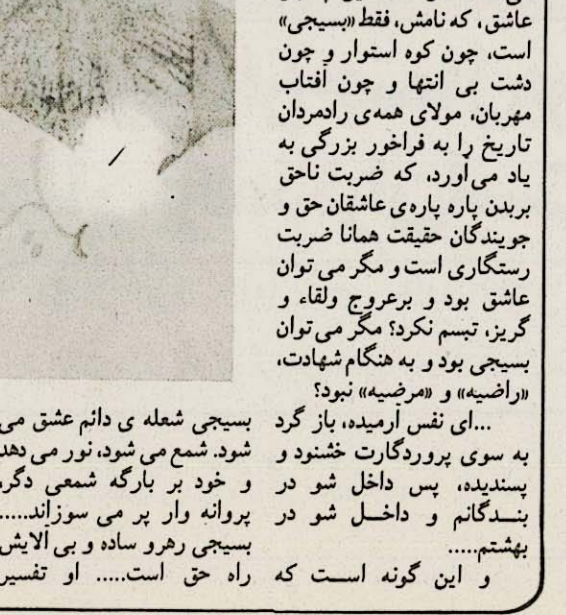 عاشق، که نامش، فقط «بسیجی»
است، چون کوه استوار و چون
دشت بی انتها و چون آفتاب
مهربان، مولای همه‌ی رادمردان
تاریخ را به فراخور بزرگی به
یاد می‌آورد، که ضربت ناحق
بریدن پاره پاره‌ی عاشقان حق و
جویندگان حقیقت همانا ضربت
رستگاری است و مگر می توان
عاشق بود و برعروج ولقاء و
گریز، تبسم نکرد؟ مگر می توان
بسیجی بود و به هنگام شهادت،
«راضیه» و «مرضیه» نبود؟
...ای نفس آرمیده، باز گرد
به سوی پروردگارت خشنود و
پسندیده، پس داخل شو در
بندگانم و داخل شو در
بهشتم.....
و این گونه است که
بسیجی شعله ی دائم عشق می
شود. شمع می شود، نور می دهد
و خود بر بارگه شمعی دگر،
پروانه وار پر می سوزاند.....
بسیجی رهرو ساده و بی آلایش
راه حق است..... او تفسیر